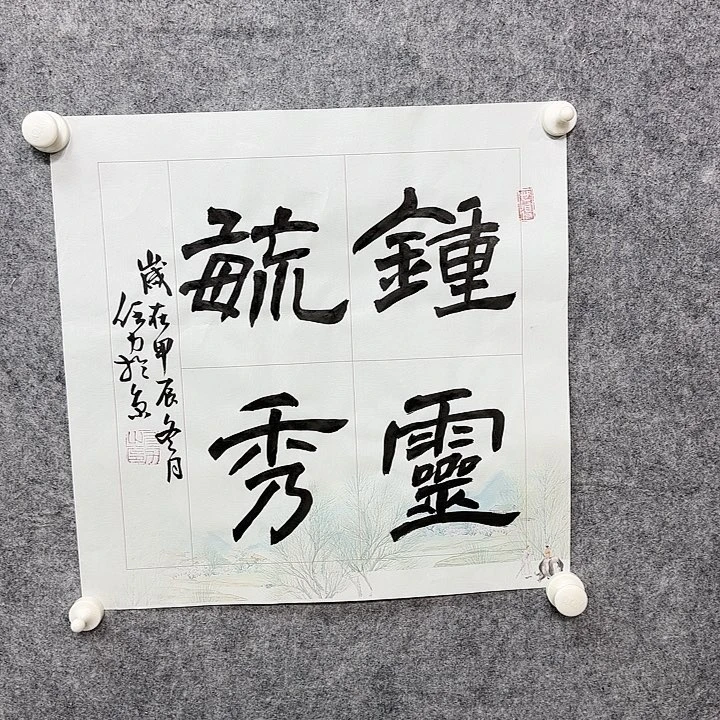 鍾靈
毓秀
歲在甲辰冬月
任力於京